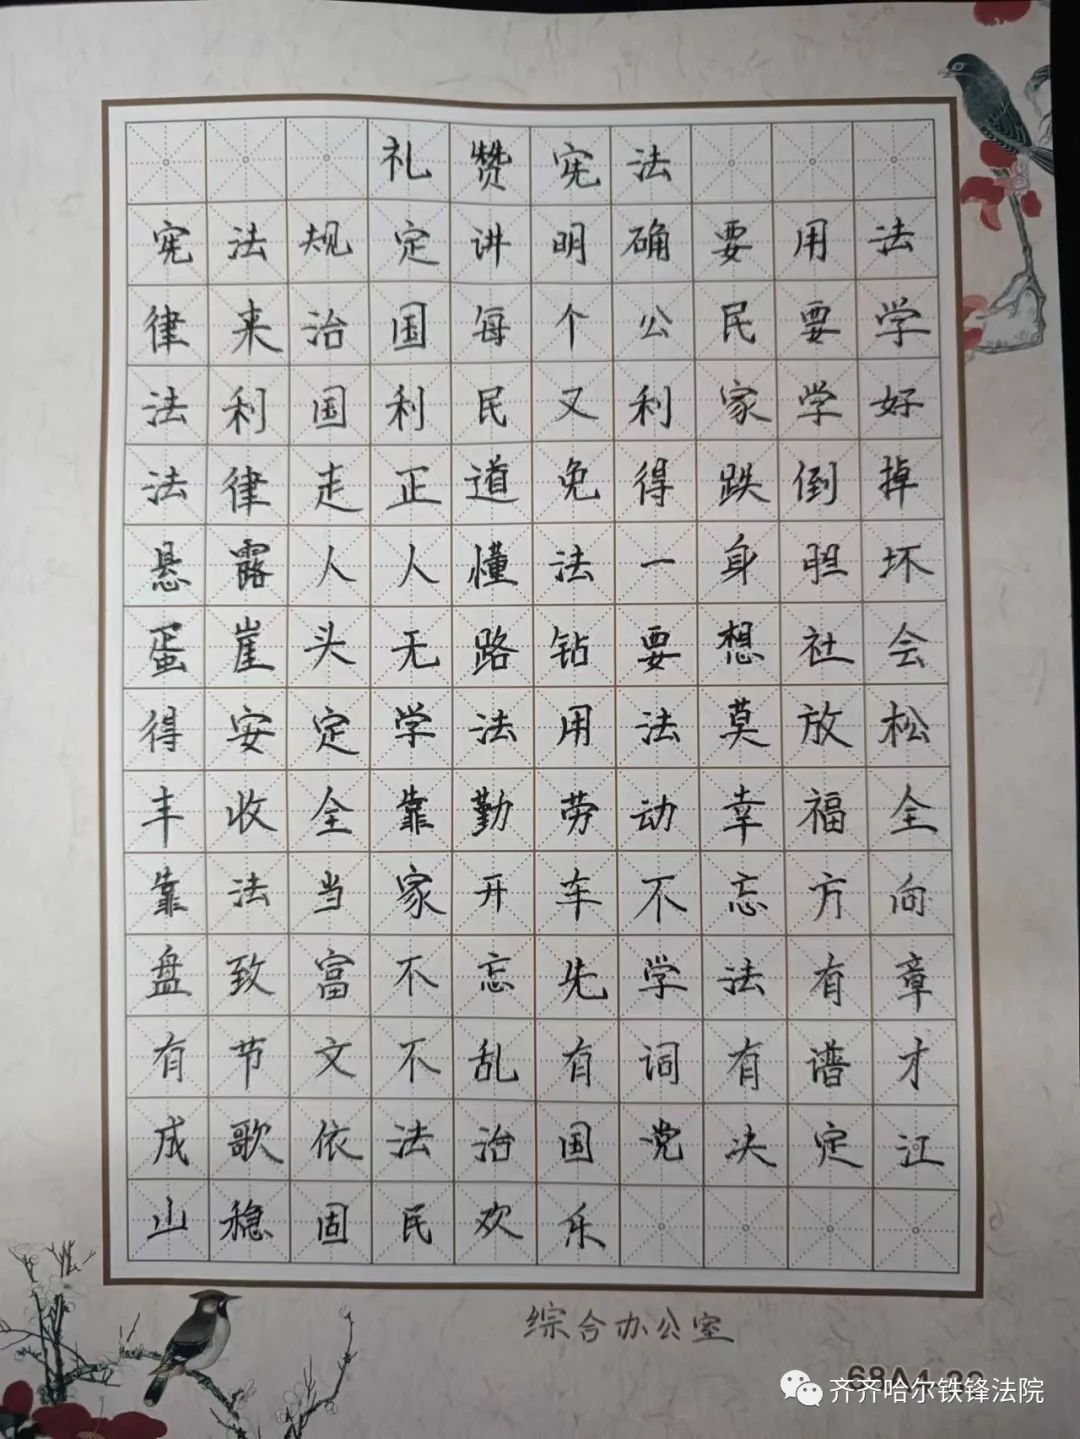 礼赞宪法
宪法规定讲明确要用法
律来治国每个公民要学
法利国利民又利家学好
法律走正道免得跌倒掉
悬露人人懂法一身胆坏
蛋崖头无路钻要想社会
得安定学法用法莫放松
丰收全靠勤劳动幸福全
靠法当家开车不忘方向
盘致富不忘先学法有章
有节文不乱有词有谱才
成歌依法治国党决定江
山稳固民欢乐
综合办公室
齐齐哈尔铁锋法院